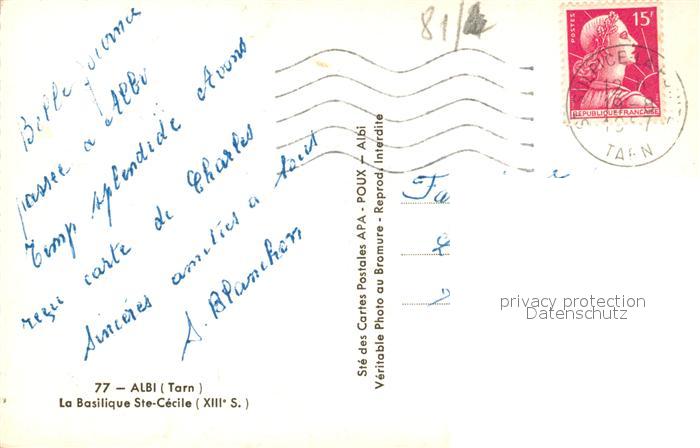 81/
Belle journée
passée à Albi
Temp splendide Avons
reçu carte de Charles
Sincères amitiés a tout
S. Blanchon
77 — ALBI (Tarn)
La Basilique Ste-Cécile (XIIIe S.)
Sté des Cartes Postales APA - POUX - Albi
Véritable Photo au Bromure - Reprod. Interdite
POSTES
15F
REPUBLIQUE FRANÇAISE
TARN
Fa
privacy protection
Datenschutz